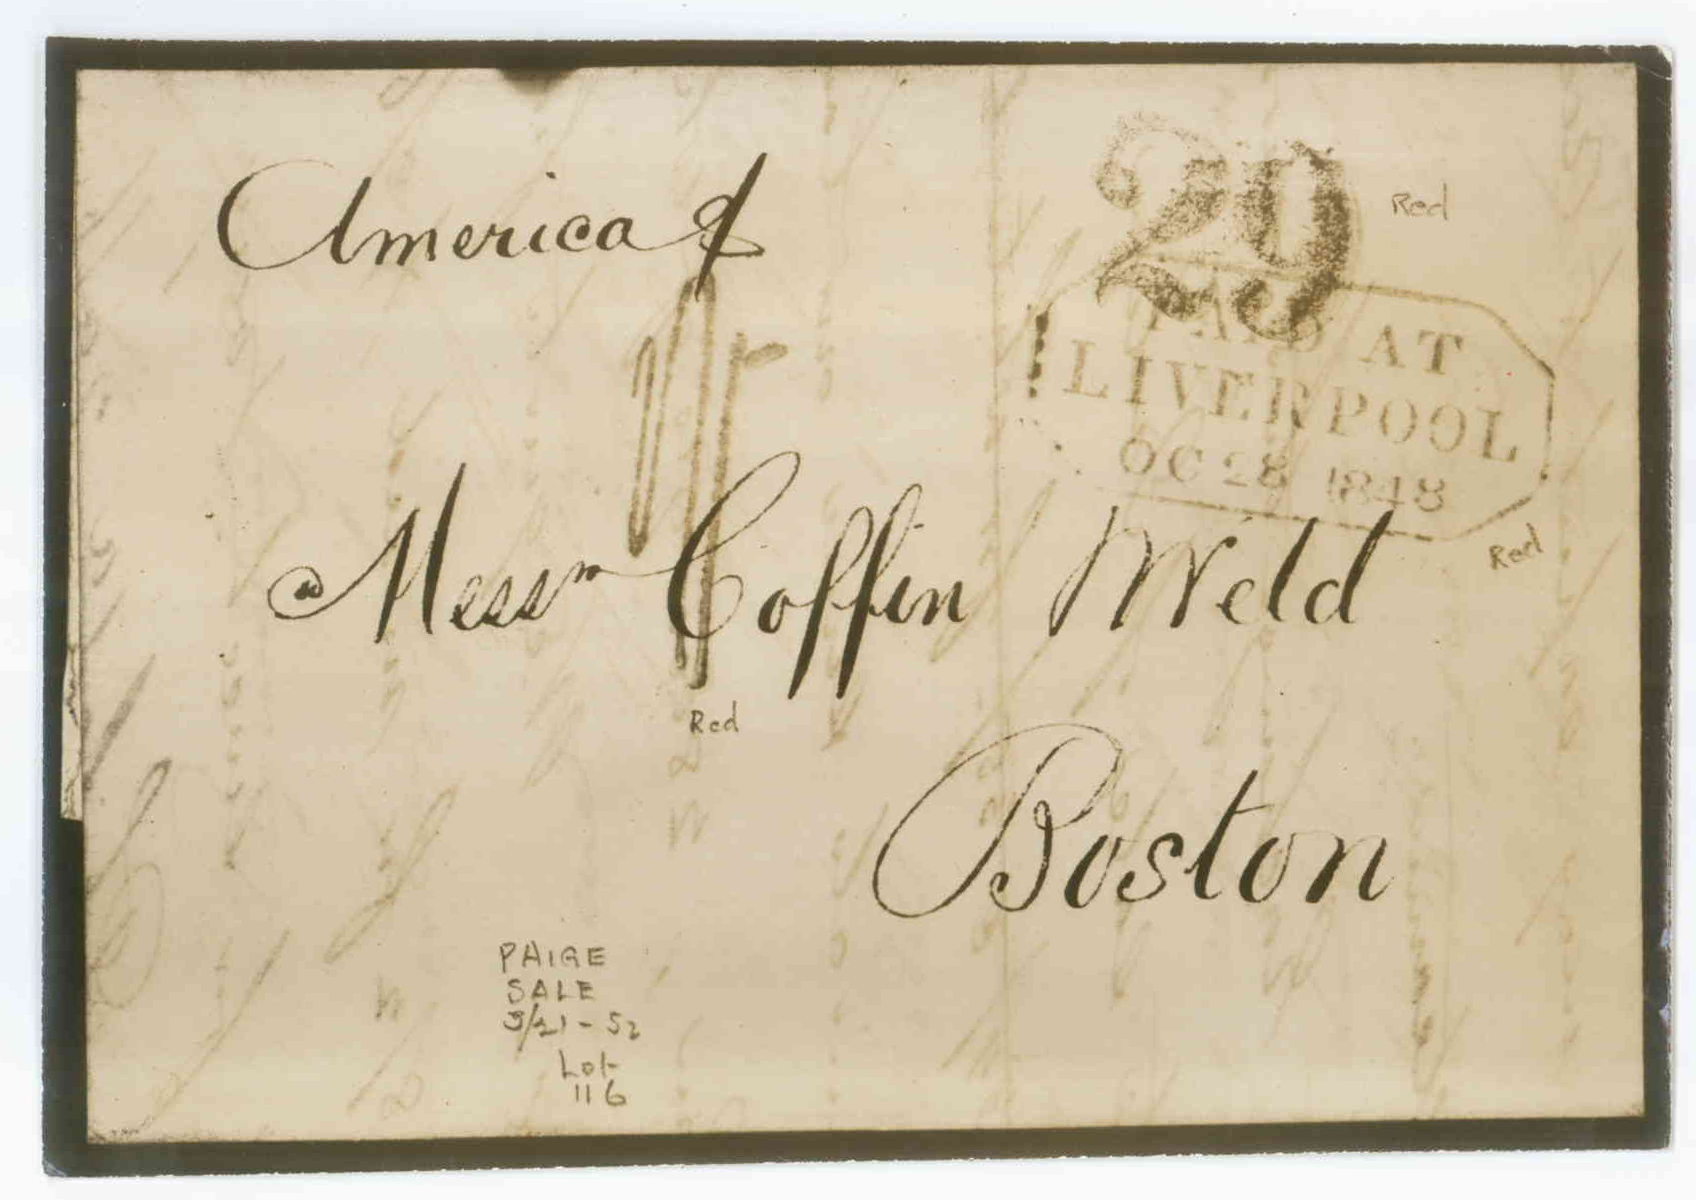 America
29
Red
PAID AT
LIVERPOOL
OC 28 1848
Red
Messrs Coffin Weld
Red
Boston
PAIGE
SALE
3/21-52
Lot
116